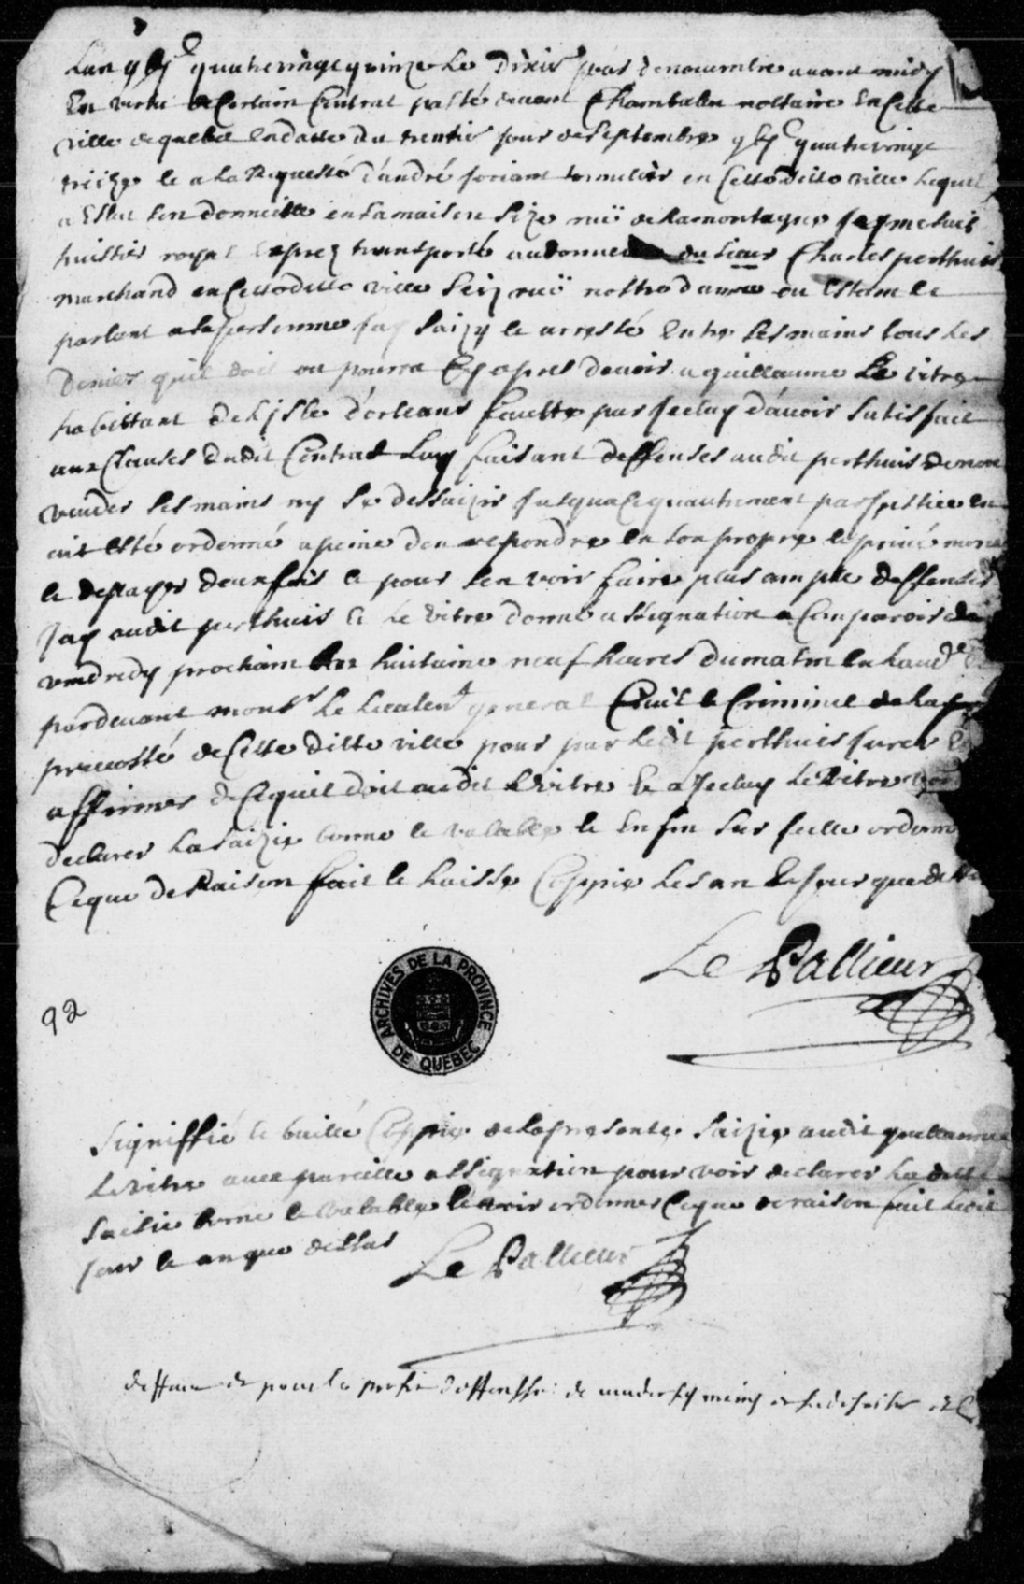 Lan gbjc quatrevingt quinze le dixie jour de novembre avant midy
En vertu de Certain Contrat passé devant Chambalon nottaire En Cette
ville de quebec En datte du trentie jour de Septembre gbjc quatrevingt
treize le a la Requeste d'andré Soriant tonnelier en Cette ditte ville lequel
a Eslu son domicille en sa maison size ruë de la montagne je me suis
huissier royal Exprez transporté au domicille du sieur Charles perthuis
marchand en Cette ditte ville seiz ruë nostre dame ou Estant le
parlant a sa personne jay saizy le arresté Entre ses mains tous les
denier quil doit ou pourra Cy apres devoir a guillaume Le vitre
habittant de lisle d'orleans faulte par jceluy d'avoir satisfait
aux Clauses dudit Contrat Luy faisant deffenses audit perthuis de non
vuider ses mains ny se dessaizir jusqua ce quautrement par justice en
ait Esté ordonné a peine den repondre En son propre le privé nom
le de payer deux fois le pour sen voir faire plus ample deffenses
Jay audit perthuis le Le vitre donné assignation a Comparoir de
vendredy prochain En huitaine neuf heures du matin En laud.ce
pardevant monsr Le Lieutent general Civil le Criminel de la
prevosté de Cette ditte ville pour par ledit perthuis jurer
affirmer de Ce quil doit audit Levitre le a jceluy Le Vitre
declarer La saizie bonne le valable le En fin sur jcelle ordonner
Ce que de Raison fait le laissé Coppie les an le jour que dessus
Le Pallieur
92
ARCHIVES DE LA PROVINCE DE QUEBEC
Signiffié le baillé Coppie de la presente saizie audit guillaume
Levitre avec pareille assignation pour voir declarer La ditte
saisie bonne le valable le voir ordonner Ce que de raison fait ledit
jour le an que dessus Le Pallieur
deffaut pour la partie deffensse de vuider ses mains